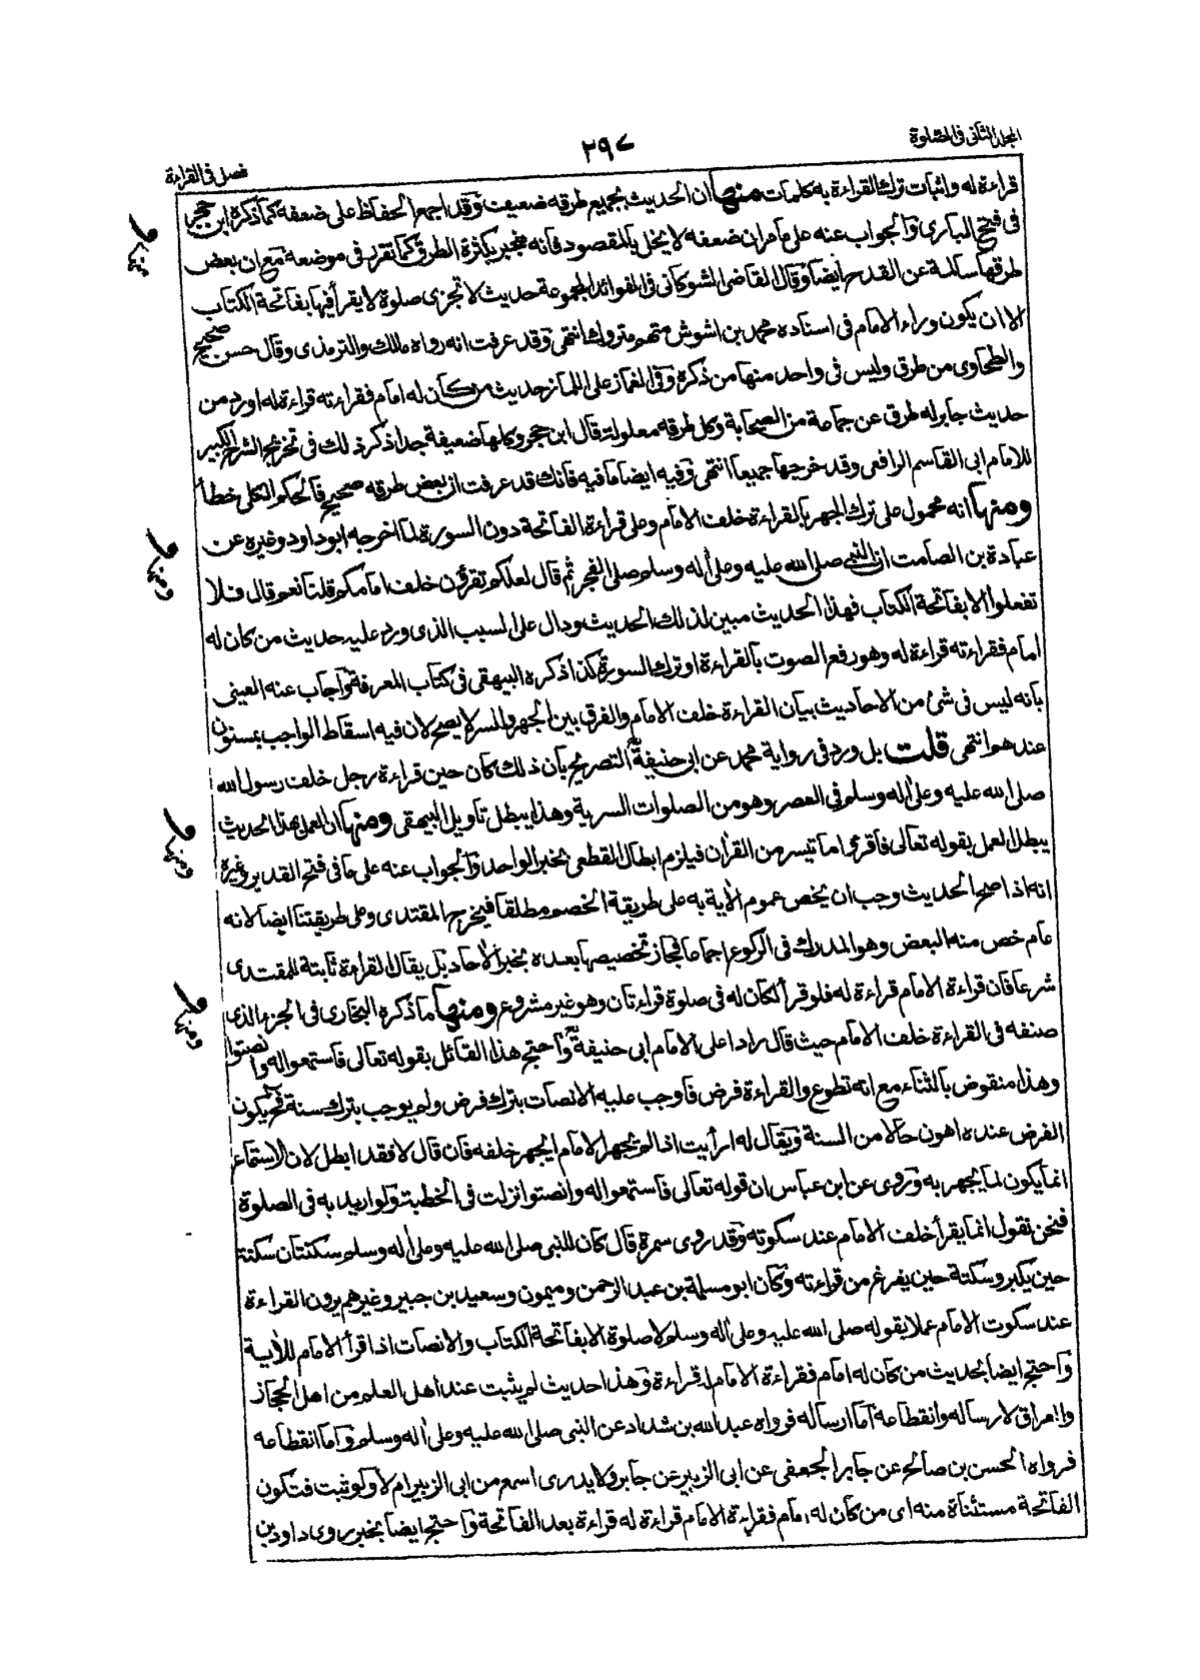 المجلد الثانى فى الصلوة
٢٩٧
فصل فى القراءة
قراءة له واثبات ترك القراءة به كلمات منها ان الحديث بجميع طرقه ضعيف وقد اجمع الحفاظ على ضعفه كما ذكره ابن حجر
فى فتح البارى والجواب عنه على ما مر ان ضعفه لا يخل بالمقصود فانه منجبر بكثرة الطرق كما تقرر فى موضعه مع ان بعض
طرقها سالمة عن القدح ايضا وقال القاضى الشوكانى فى الفوائد المجموعة حديث لا تجزى صلوة لا يقرأ فيها بفاتحة الكتاب
الا ان يكون وراء الامام فى اسناده محمد بن اشوش متهم متروك انتهى وقد عرفت انه رواه مالك والترمذى وقال حسن صحيح
والطحاوى من طرق وليس فى واحد منها من ذكره وفى الغماز على اللماز حديث من كان له امام فقراءته قراءة له اورد من
حديث جابر له طرق عن جماعة من الصحابة وكل طرقه معلولة قال ابن حجر وكلها ضعيفة جدا ذكر ذلك فى تخريج الشرح الكبير
للامام ابى القاسم الرافعى وقد خرجها جميعا انتهى وفيه ايضا ما فيه فانك قد عرفت ان بعض طرقه صحيح فالحكم الكلى خطأ
ومنها انه محمول على ترك الجهر بالقراءة خلف الامام وعلى قراءة الفاتحة دون السورة لما اخرجه ابو داود وغيره عن
عبادة بن الصامت ان النبى صلى الله عليه وعلى اله وسلم صلى الفجر ثم قال لعلكم تقرؤن خلف امامكم قلنا نعم قال فلا
تفعلوا الا بفاتحة الكتاب فهذا الحديث مبين لذلك الحديث ودال على السبب الذى ورد عليه حديث من كان له
امام فقراءته قراءة له وهو رفع الصوت بالقراءة او ترك السورة كذا ذكره البيهقى فى كتاب المعرفة واجاب عنه العينى
بانه ليس فى شئ من الاحاديث بيان القراءة خلف الامام والفرق بين الجهر والسر لا يصح لان فيه اسقاط الواجب بمسنون
عندهم انتهى قلت بل ورد فى رواية محمد عن ابى حنيفة التصريح بان ذلك كان حين قراءة رجل خلف رسول الله
صلى الله عليه وعلى اله وسلم فى العصر وهو من الصلوات السرية وهذا يبطل تاويل البيهقى ومنها ان العمل بهذا الحديث
يبطل العمل بقوله تعالى فاقرءوا ما تيسر من القران فيلزم ابطال القطعى بخبر الواحد والجواب عنه على ما فى فتح القدير وغيره
انه اذا صح الحديث وجب ان يخص عموم الاية به على طريقة الخصم مطلقا فيخرج المقتدى وعلى طريقتنا ايضا لانه
عام خص منه البعض وهو المدرك فى الركوع اجماعا فجاز تخصيصها بعده بخبر الاحاد بل يقال القراءة ثابتة للمقتدى
شرعا فان قراءة الامام قراءة له فلو قرأ لكان له فى صلوة قراءتان وهو غير مشروع ومنها ما ذكره البخارى فى الجزء الذى
صنفه فى القراءة خلف الامام حيث قال رادا على الامام ابى حنيفة واحتج هذا القائل بقوله تعالى فاستمعوا له وانصتوا
وهذا منقوض بالثناء مع انه تطوع والقراءة فرض فاوجب عليه الانصات بترك فرض ولم يوجب بترك سنة فح يكون
الفرض عنده اهون حالا من السنة ويقال له ارأيت اذا لم يجهر الامام ايجهر خلفه فان قال لا فقد ابطل لان الاستماع
انما يكون لما يجهر به وروى عن ابن عباس ان قوله تعالى فاستمعوا له وانصتوا نزلت فى الخطبة ولو اريد به فى الصلوة
فنحن نقول انما يقرأ خلف الامام عند سكوته وقد روى سمرة قال كان للنبى صلى الله عليه وعلى اله وسلم سكتتان سكتة
حين يكبر وسكتة حين يفرغ من قراءته وكان ابو مسلمة بن عبد الرحمن وميمون وسعيد بن جبير وغيرهم يرون القراءة
عند سكوت الامام عملا بقوله صلى الله عليه وعلى اله وسلم لا صلوة الا بفاتحة الكتاب والانصات اذا قرأ الامام للاية
واحتج ايضا بحديث من كان له امام فقراءة الامام له قراءة وهذا حديث لم يثبت عند اهل العلم من اهل الحجاز
والعراق لارساله وانقطاعه اما ارساله فرواه عبد الله بن شداد عن النبى صلى الله عليه وعلى اله وسلم واما انقطاعه
فرواه الحسن بن صالح عن جابر الجعفى عن ابى الزبير عن جابر ولا يدرى اسمع من ابى الزبير ام لا ولو ثبت فتكون
الفاتحة مستثناة منه اى من كان له امام فقراءة الامام قراءة له قراءة بعد الفاتحة واحتج ايضا بخبر روى داود بن
ومنها
ومنها
ومنها
ومنها